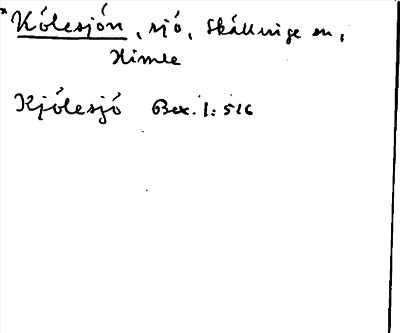 *Kölesjön, sjö, Skällinge sn,
Himle
Kjölesjö Bex. 1: 516